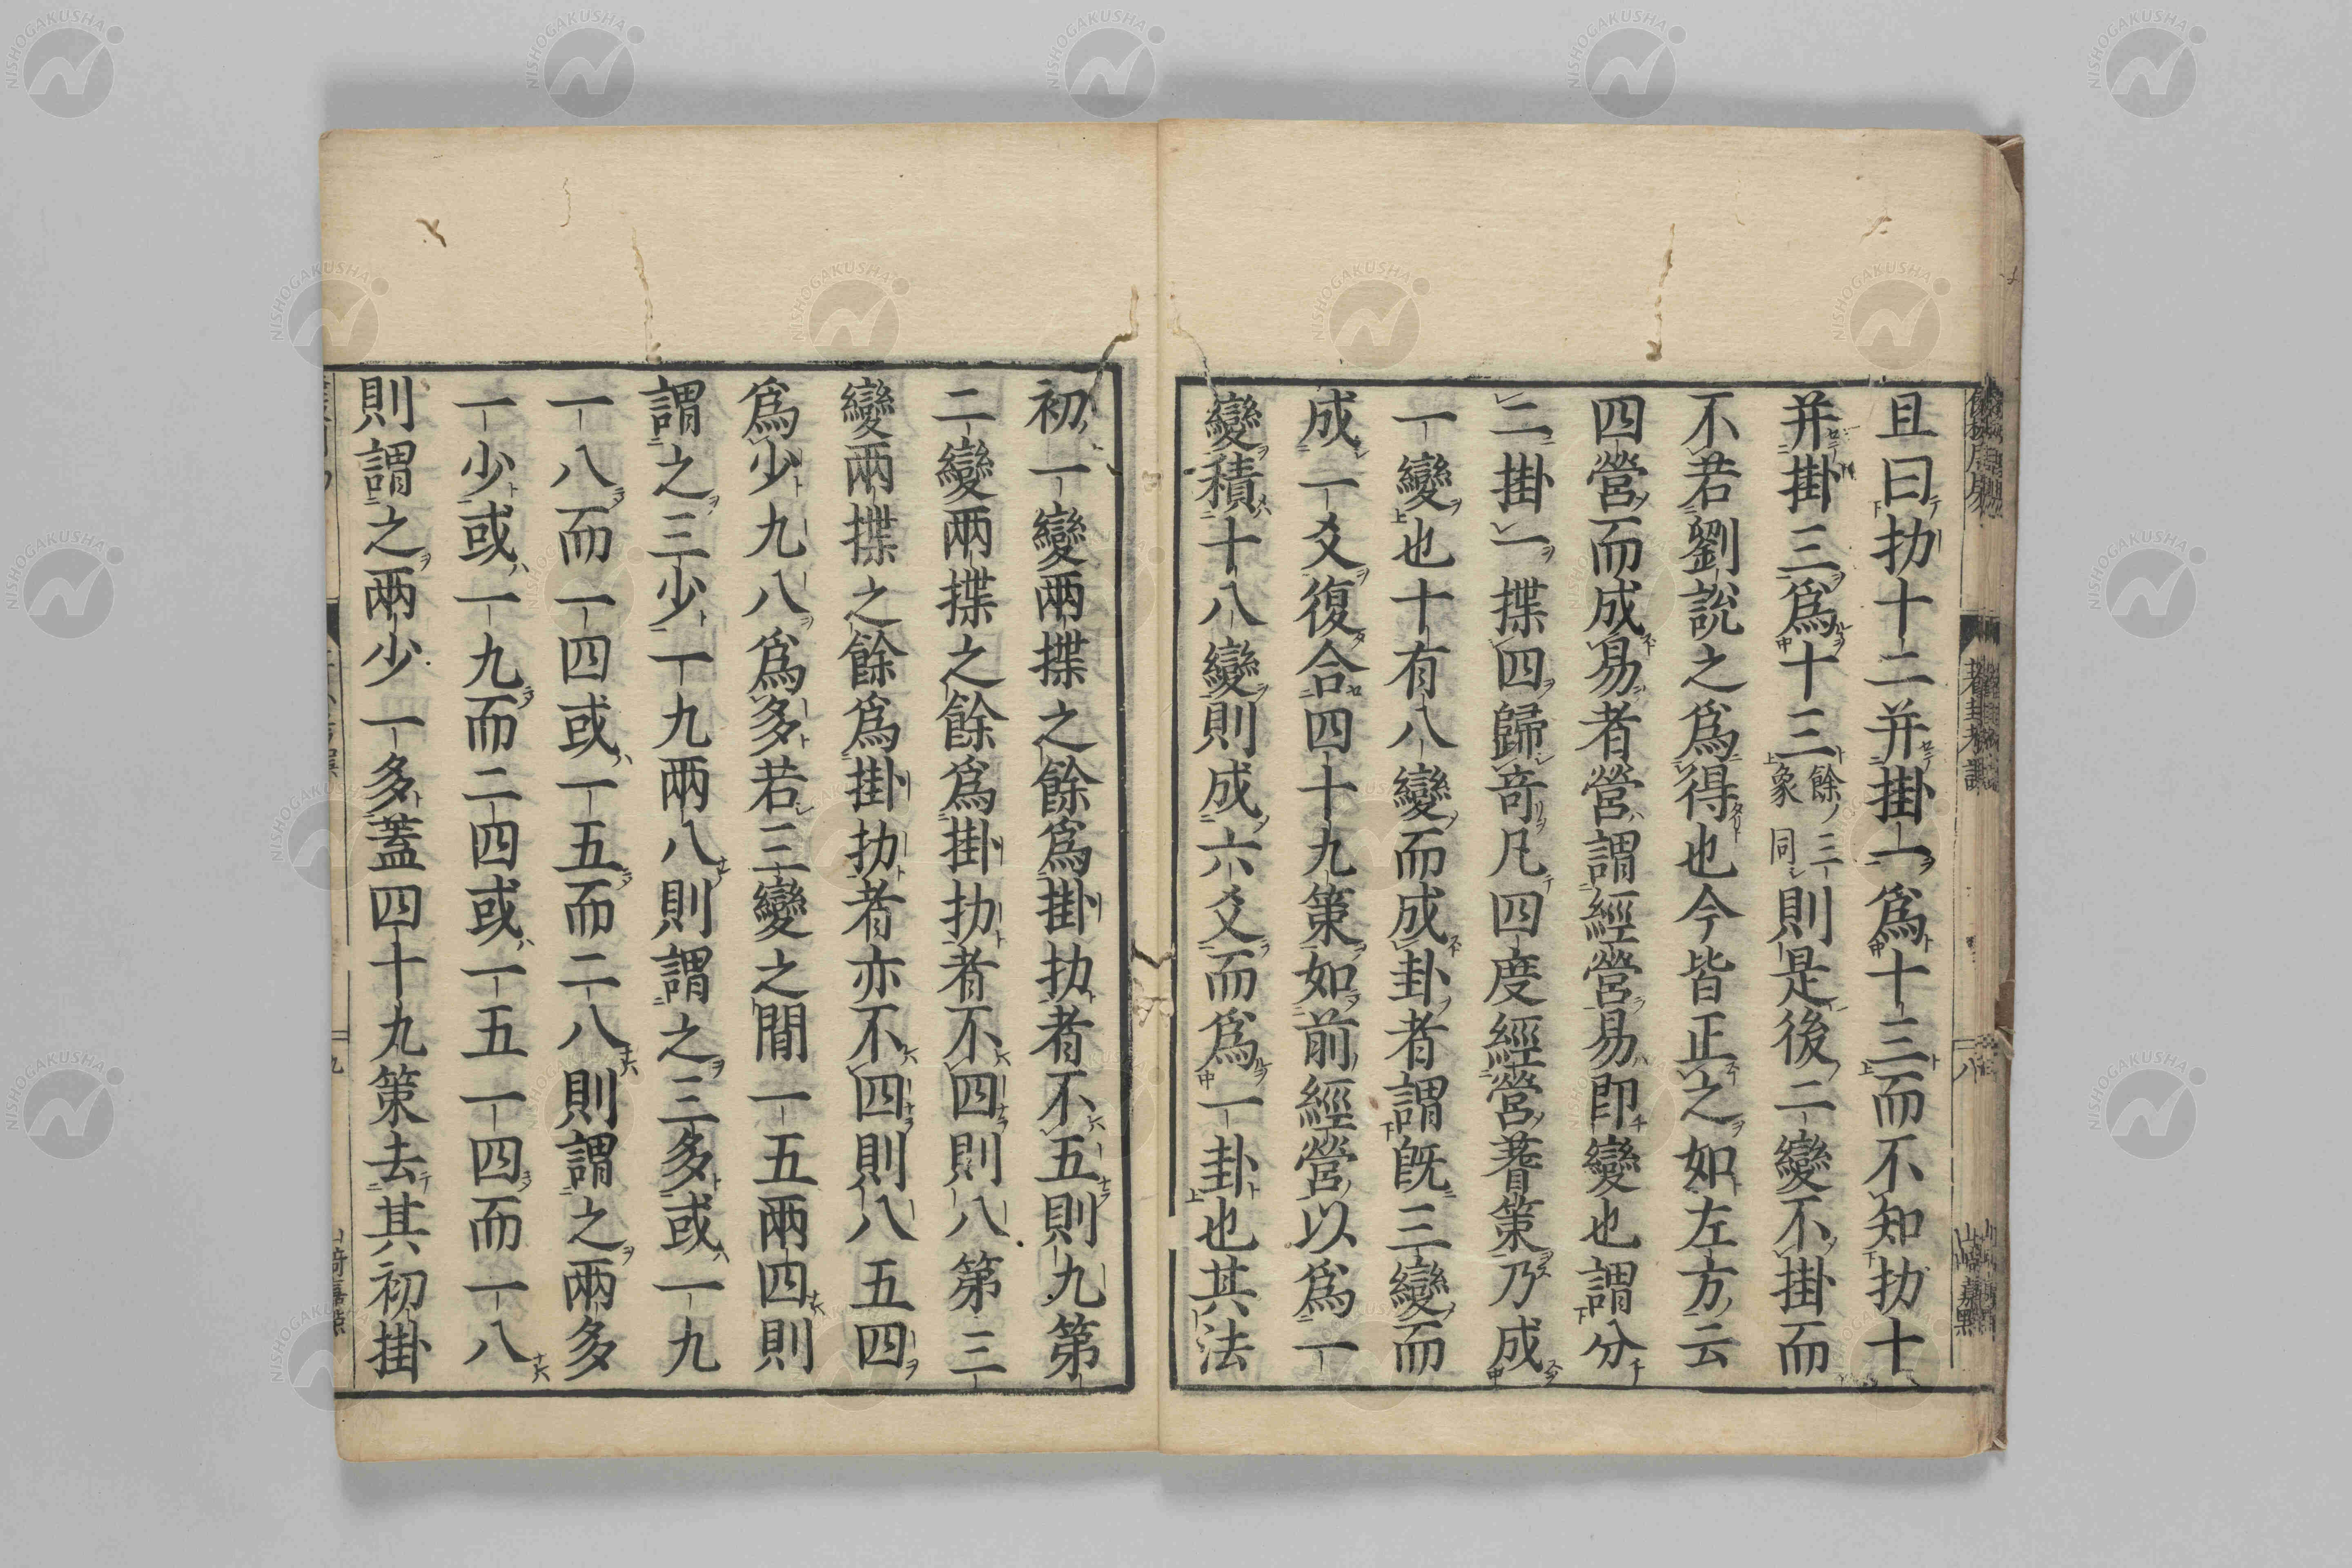 且曰扐十二并掛一爲十三而不知扐十
并掛三爲十三餘三象同則是後二變不掛而
不若劉說之爲得也今皆正之如左方云
四營而成易者營謂經營易即變也謂分
二掛一揲四歸奇凡四度經營蓍策乃成
一變也十有八變而成卦者謂既三變而
成一爻復合四十九策如前經營以爲一
變積十八變則成六爻而爲一卦也其法
初一變兩揲之餘爲掛扐者不五則九第
二變兩揲之餘爲掛扐者不四則八第三
變兩揲之餘爲掛扐者亦不四則八五四
爲少九八爲多若三變之間一五兩四則
謂之三少一九兩八則謂之三多或一九
一八而一四或一五而二八則謂之兩多
一少或一九而二四或一五一四而一八
則謂之兩少一多蓋四十九策去其初掛
蓍卦考誤
八
山崎嘉點
九
NISHOGAKUSHA